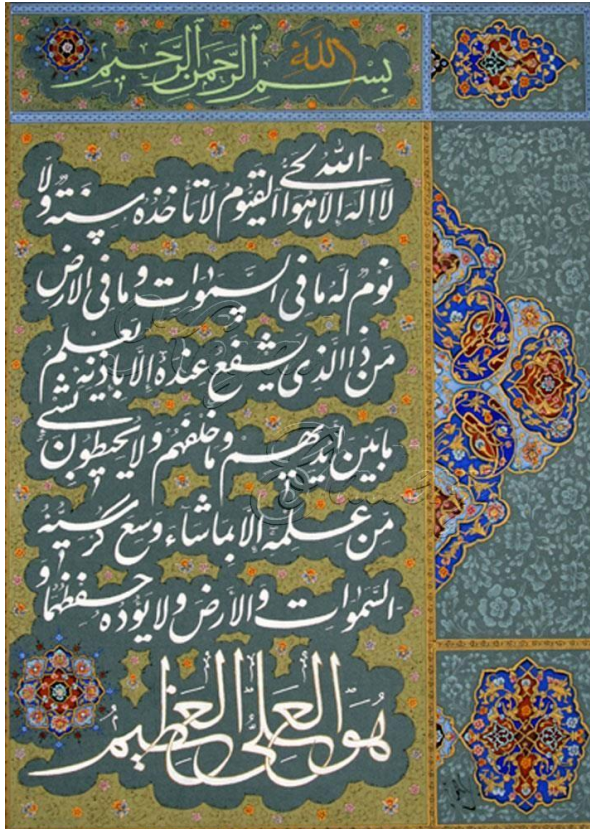 بسم الله الرحمن الرحیم
الله لا اله الا هو الحی القیوم لا تأخذه سنة ولا
نوم له ما فی السموات و ما فی الارض
من ذا الذی یشفع عنده الا باذنه یعلم
ما بین ایدیهم و ما خلفهم ولا یحیطون بشیء
من علمه الا بما شاء وسع کرسیه
السموات والارض ولا یؤده حفظهما و
هو العلی العظیم